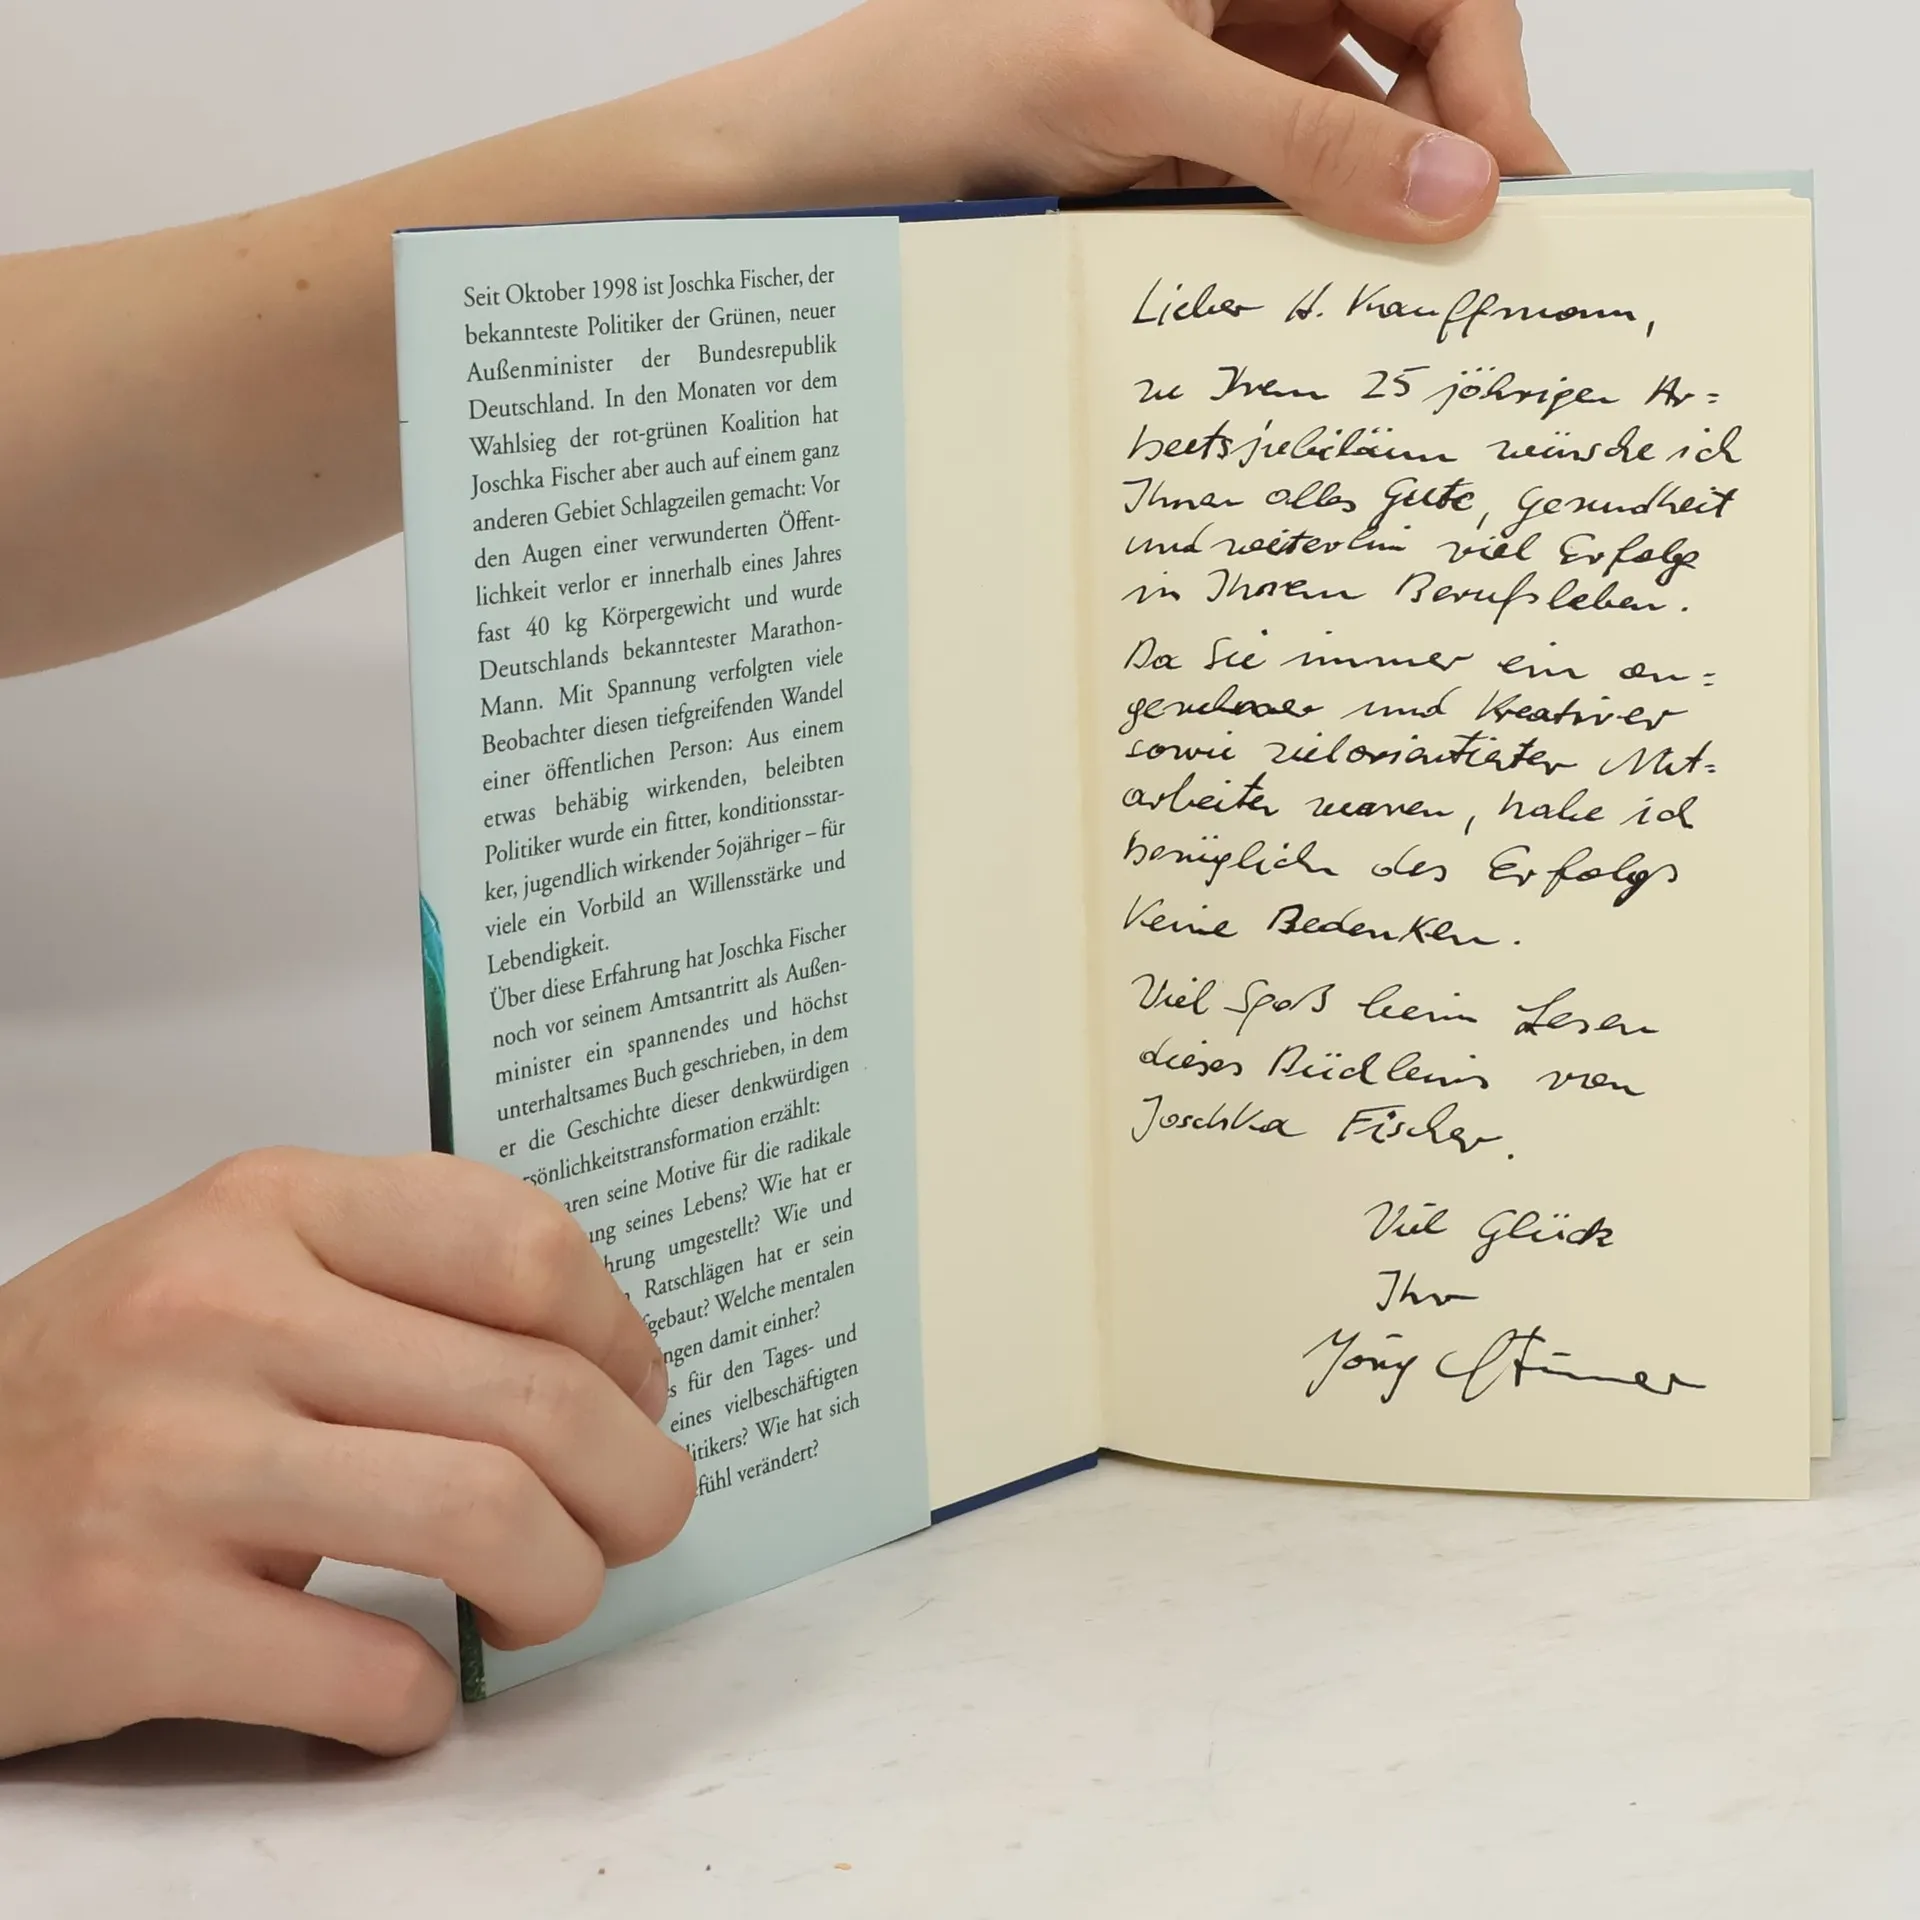 Seit Oktober 1998 ist Joschka Fischer, der
bekannteste Politiker der Grünen, neuer
Außenminister der Bundesrepublik
Deutschland. In den Monaten vor dem
Wahlsieg der rot-grünen Koalition hat
Joschka Fischer aber auch auf einem ganz
anderen Gebiet Schlagzeilen gemacht: Vor
den Augen einer verwunderten Öffent-
lichkeit verlor er innerhalb eines Jahres
fast 40 kg Körpergewicht und wurde
Deutschlands bekanntester Marathon-
Mann. Mit Spannung verfolgten viele
Beobachter diesen tiefgreifenden Wandel
einer öffentlichen Person: Aus einem
etwas behäbig wirkenden, beleibten
Politiker wurde ein fitter, konditionsstar-
ker, jugendlich wirkender 50jähriger – für
viele ein Vorbild an Willensstärke und
Lebendigkeit.
Über diese Erfahrung hat Joschka Fischer
noch vor seinem Amtsantritt als Außen-
minister ein spannendes und höchst
unterhaltsames Buch geschrieben, in dem
er die Geschichte dieser denkwürdigen
rsönlichkeitstransformation erzählt:
aren seine Motive für die radikale
ung seines Lebens? Wie hat er
hrung umgestellt? Wie und
Ratschlägen hat er sein
fgebaut? Welche mentalen
ngen damit einher?
s für den Tages- und
eines vielbeschäftigten
litikers? Wie hat sich
efühl verändert?
Lieber H. Kauffmann,
zu Ihrem 25 jährigen Ar=
beitsjubiläum wünsche ich
Ihnen alles Gute, Gesundheit
und weiterhin viel Erfolg
in Ihrem Berufsleben.
Da Sie immer ein an=
genehmer und Kreativer
sowie zielorientierter Mit=
arbeiter waren, habe ich
bezüglich des Erfolgs
Keine Bedenken.
Viel Spaß beim Lesen
dieses Büchleins von
Joschka Fischer.
Viel Glück
Ihr
Jörg